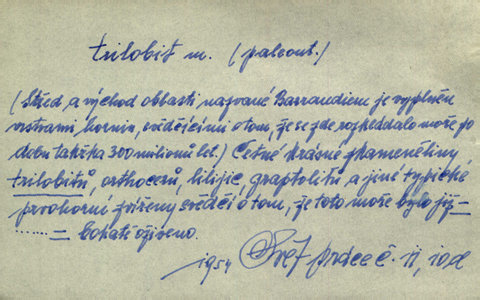 trilobit m. (paleont.)
(Střed a východ oblasti nazvané Barrandien je vyplněn
vrstvami hornin, svědčícími o tom, že se zde rozkládalo moře po
dobu takřka 300 milionů let.) Četné krásné zkameněliny
trilobitů, orthocerů, lilijic, graptolitů a jiné typické
prvohorní zvířeny svědčí o tom, že toto moře bylo již =
....... = bohatě oživeno.
1954 Svět práce č. 11,